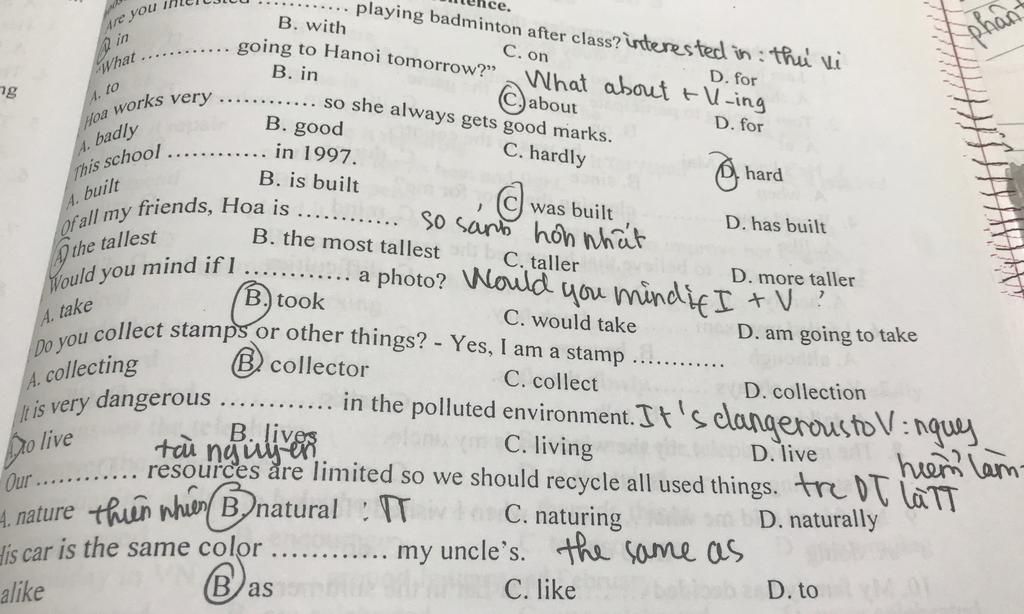 Are you interested ............ playing badminton after class? interested in : thú vị
A. in B. with C. on D. for
"What ............ going to Hanoi tomorrow?" What about + V-ing
A. to B. in C. about D. for
Hoa works very ............ so she always gets good marks.
A. badly B. good C. hardly D. hard
This school ............ in 1997.
A. built B. is built C. was built D. has built
Of all my friends, Hoa is ............ so sánh hơn nhất
A. the tallest B. the most tallest C. taller D. more taller
Would you mind if I ............ a photo? Would you mind if I + V
A. take B. took C. would take D. am going to take
Do you collect stamps or other things? - Yes, I am a stamp ............
A. collecting B. collector C. collect D. collection
It is very dangerous ............ in the polluted environment. It's dangerous to V : nguy
A. to live B. lives C. living D. live hiểm làm
tài nguyên
Our ............ resources are limited so we should recycle all used things. trc DT là TT
A. nature thiên nhiên B. natural . TT C. naturing D. naturally
His car is the same color ............ my uncle's. the same as
alike B. as C. like D. to
10. My
phần
ng